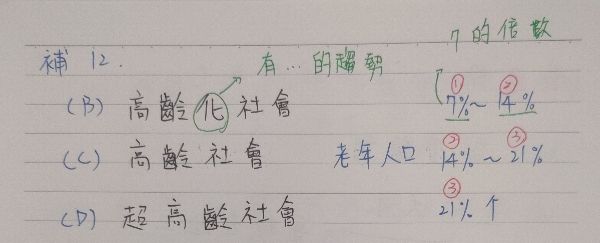 7的倍數
補 12. 有...的趨勢
(B) 高齡化社會 ①7%~②14%
(C) 高齡社會 老年人口 ②14%~③21%
(D) 超高齡社會 ③21%↑